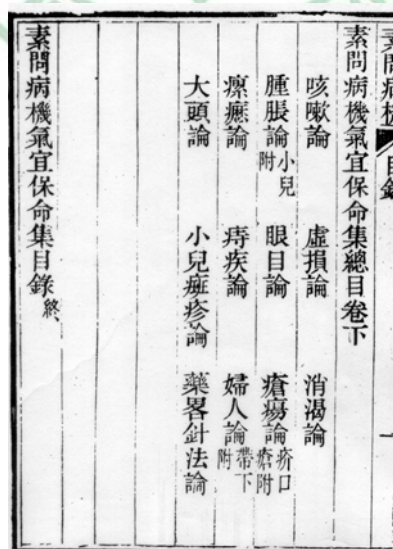 素問病機 目錄
素問病機氣宜保命集總目卷下
咳嗽論 虛損論 消渴論
腫脹論小兒附 眼目論 瘡瘍論疥口瘡附
瘰癧論 痔疾論 婦人論帶下附
大頭論 小兒癍疹論 藥畧針法論
素問病機氣宜保命集目錄終